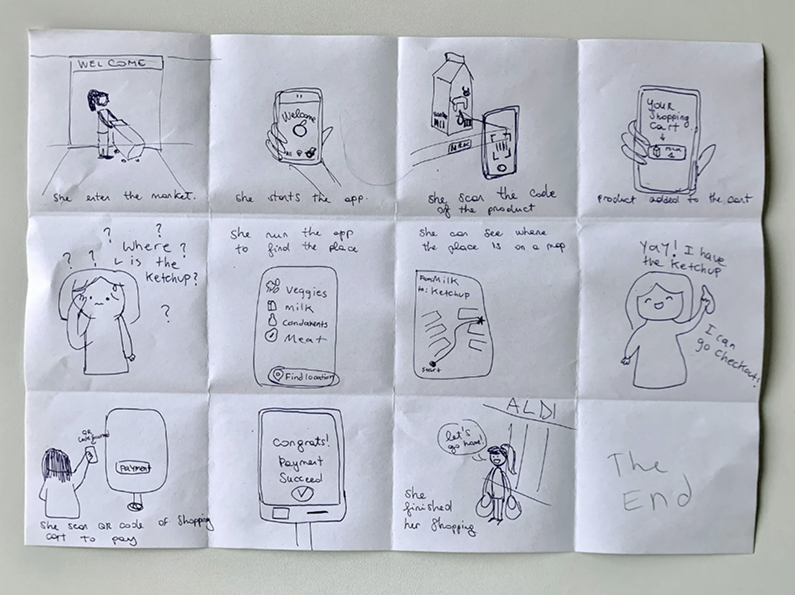 WELCOME
She enter the market.
Welcome
She starts the app.
MILK
She scan the Code
of the product
Your
Shopping
Cart
product added to the cart
? ? ? ? ? ?
Where
is the
Ketchup?
She run the app
to find the place
Veggies
Milk
Condaments
Meat
Find location
She can see where
the place is on a map
From Milk
to: Ketchup
Start
Yay! I have
the Ketchup
I can
go checkout!
QR
Payment
She scan QR code of Shopping
cart to pay
Congrats!
Payment
Succeed
ALDI
let's
go home!
She
finished
her shopping
The
End